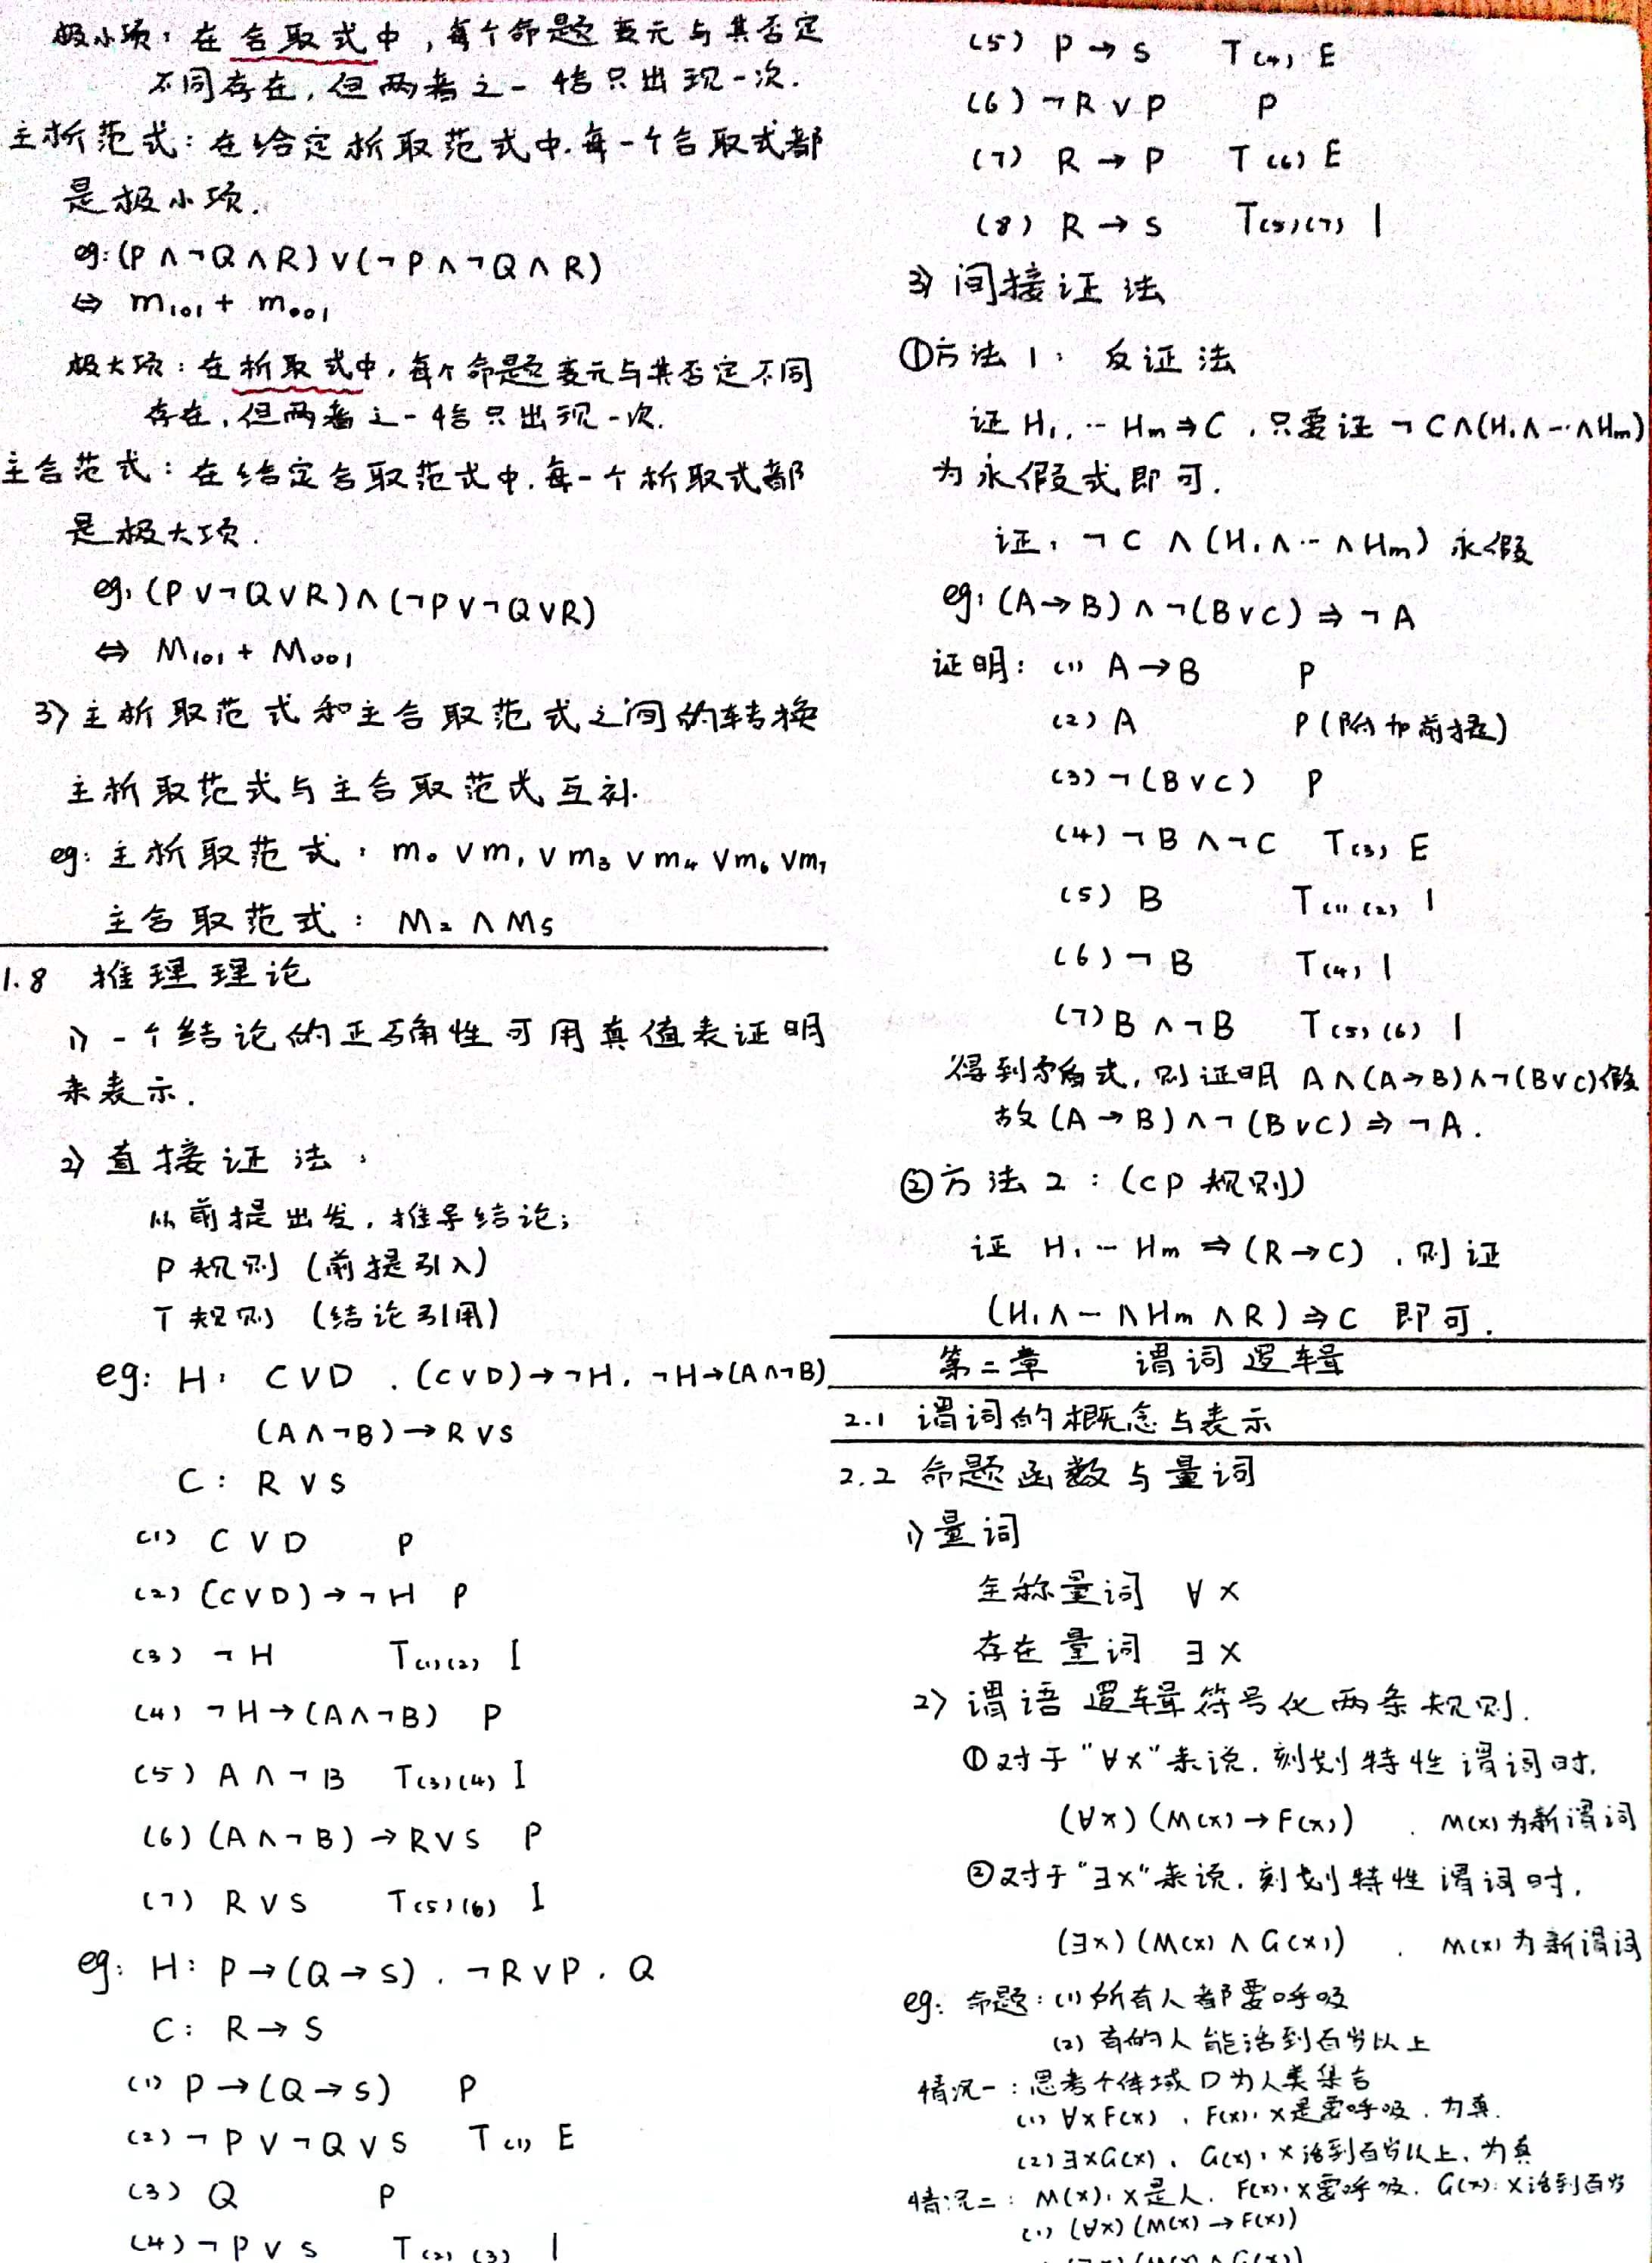 极小项：在合取式中，每个命题变元与其否定
不同存在，但两者之一恰只出现一次.
主析范式：在给定析取范式中.每一个合取式都
是极小项.
eg:(P∧¬Q∧R)∨(¬P∧¬Q∧R)
⇔ m₁₀₁ + m₀₀₁
极大项：在析取式中，每个命题变元与其否定不同
存在，但两者之一恰只出现一次.
主合范式：在给定合取范式中.每一个析取式都
是极大项.
eg：(P∨¬Q∨R)∧(¬P∨¬Q∨R)
⇔ M₁₀₁ + M₀₀₁
3) 主析取范式和主合取范式之间的转换
主析取范式与主合取范式互补.
eg: 主析取范式：m₀∨m₁∨m₃∨m₄∨m₆∨m₇
主合取范式：M₂∧M₅
1.8 推理理论
1) 一个结论的正确性可用真值表证明
来表示.
2) 直接证法：
从前提出发，推导结论；
P规则 (前提引入)
T规则 (结论引用)
eg: H： C∨D ，(C∨D)→¬H，¬H→(A∧¬B)
(A∧¬B)→R∨S
C： R∨S
(1) C∨D P
(2) (C∨D)→¬H P
(3) ¬H T(1)(2) I
(4) ¬H→(A∧¬B) P
(5) A∧¬B T(3)(4) I
(6) (A∧¬B)→R∨S P
(7) R∨S T(5)(6) I
eg: H: P→(Q→S) ，¬R∨P ，Q
C: R→S
(1) P→(Q→S) P
(2) ¬P∨¬Q∨S T(1) E
(3) Q P
(4) ¬P∨S T(2)(3) I
(5) P→S T(4) E
(6) ¬R∨P P
(7) R→P T(6) E
(8) R→S T(5)(7) I
3) 间接证法
①方法1： 反证法
证 H₁，… Hₘ⇒C ，只要证 ¬C∧(H₁∧…∧Hₘ)
为永假式即可.
证：¬C∧(H₁∧…∧Hₘ) 永假
eg：(A→B)∧¬(B∨C)⇒¬A
证明：(1) A→B P
(2) A P(附加前提)
(3) ¬(B∨C) P
(4) ¬B∧¬C T(3) E
(5) B T(1)(2) I
(6) ¬B T(4) I
(7) B∧¬B T(5)(6) I
得到矛盾式，则证明 A∧(A→B)∧¬(B∨C)假
故(A→B)∧¬(B∨C)⇒¬A.
②方法2：(CP规则)
证 H₁…Hₘ⇒(R→C) ，则证
(H₁∧…∧Hₘ∧R)⇒C 即可.
第二章 谓词逻辑
2.1 谓词的概念与表示
2.2 命题函数与量词
1) 量词
全称量词 ∀x
存在量词 ∃x
2) 谓语逻辑符号化两条规则.
①对于"∀x"来说，刻划特性谓词时，
(∀x)(M(x)→F(x)) ，M(x)为新谓词
②对于"∃x"来说，刻划特性谓词时，
(∃x)(M(x)∧G(x)) ，M(x)为新谓词
eg: 命题：(1)所有人都要呼吸
(2) 有的人能活到百岁以上
情况一：思考个体域D为人类集合
(1) ∀xF(x) ，F(x)：x是要呼吸，为真.
(2) ∃xG(x) ，G(x)：x活到百岁以上，为真
情况二：M(x)：x是人. F(x)：x要呼吸. G(x)：x活到百岁
(1) (∀x)(M(x)→F(x))
(∃x)(M(x)∧G(x))